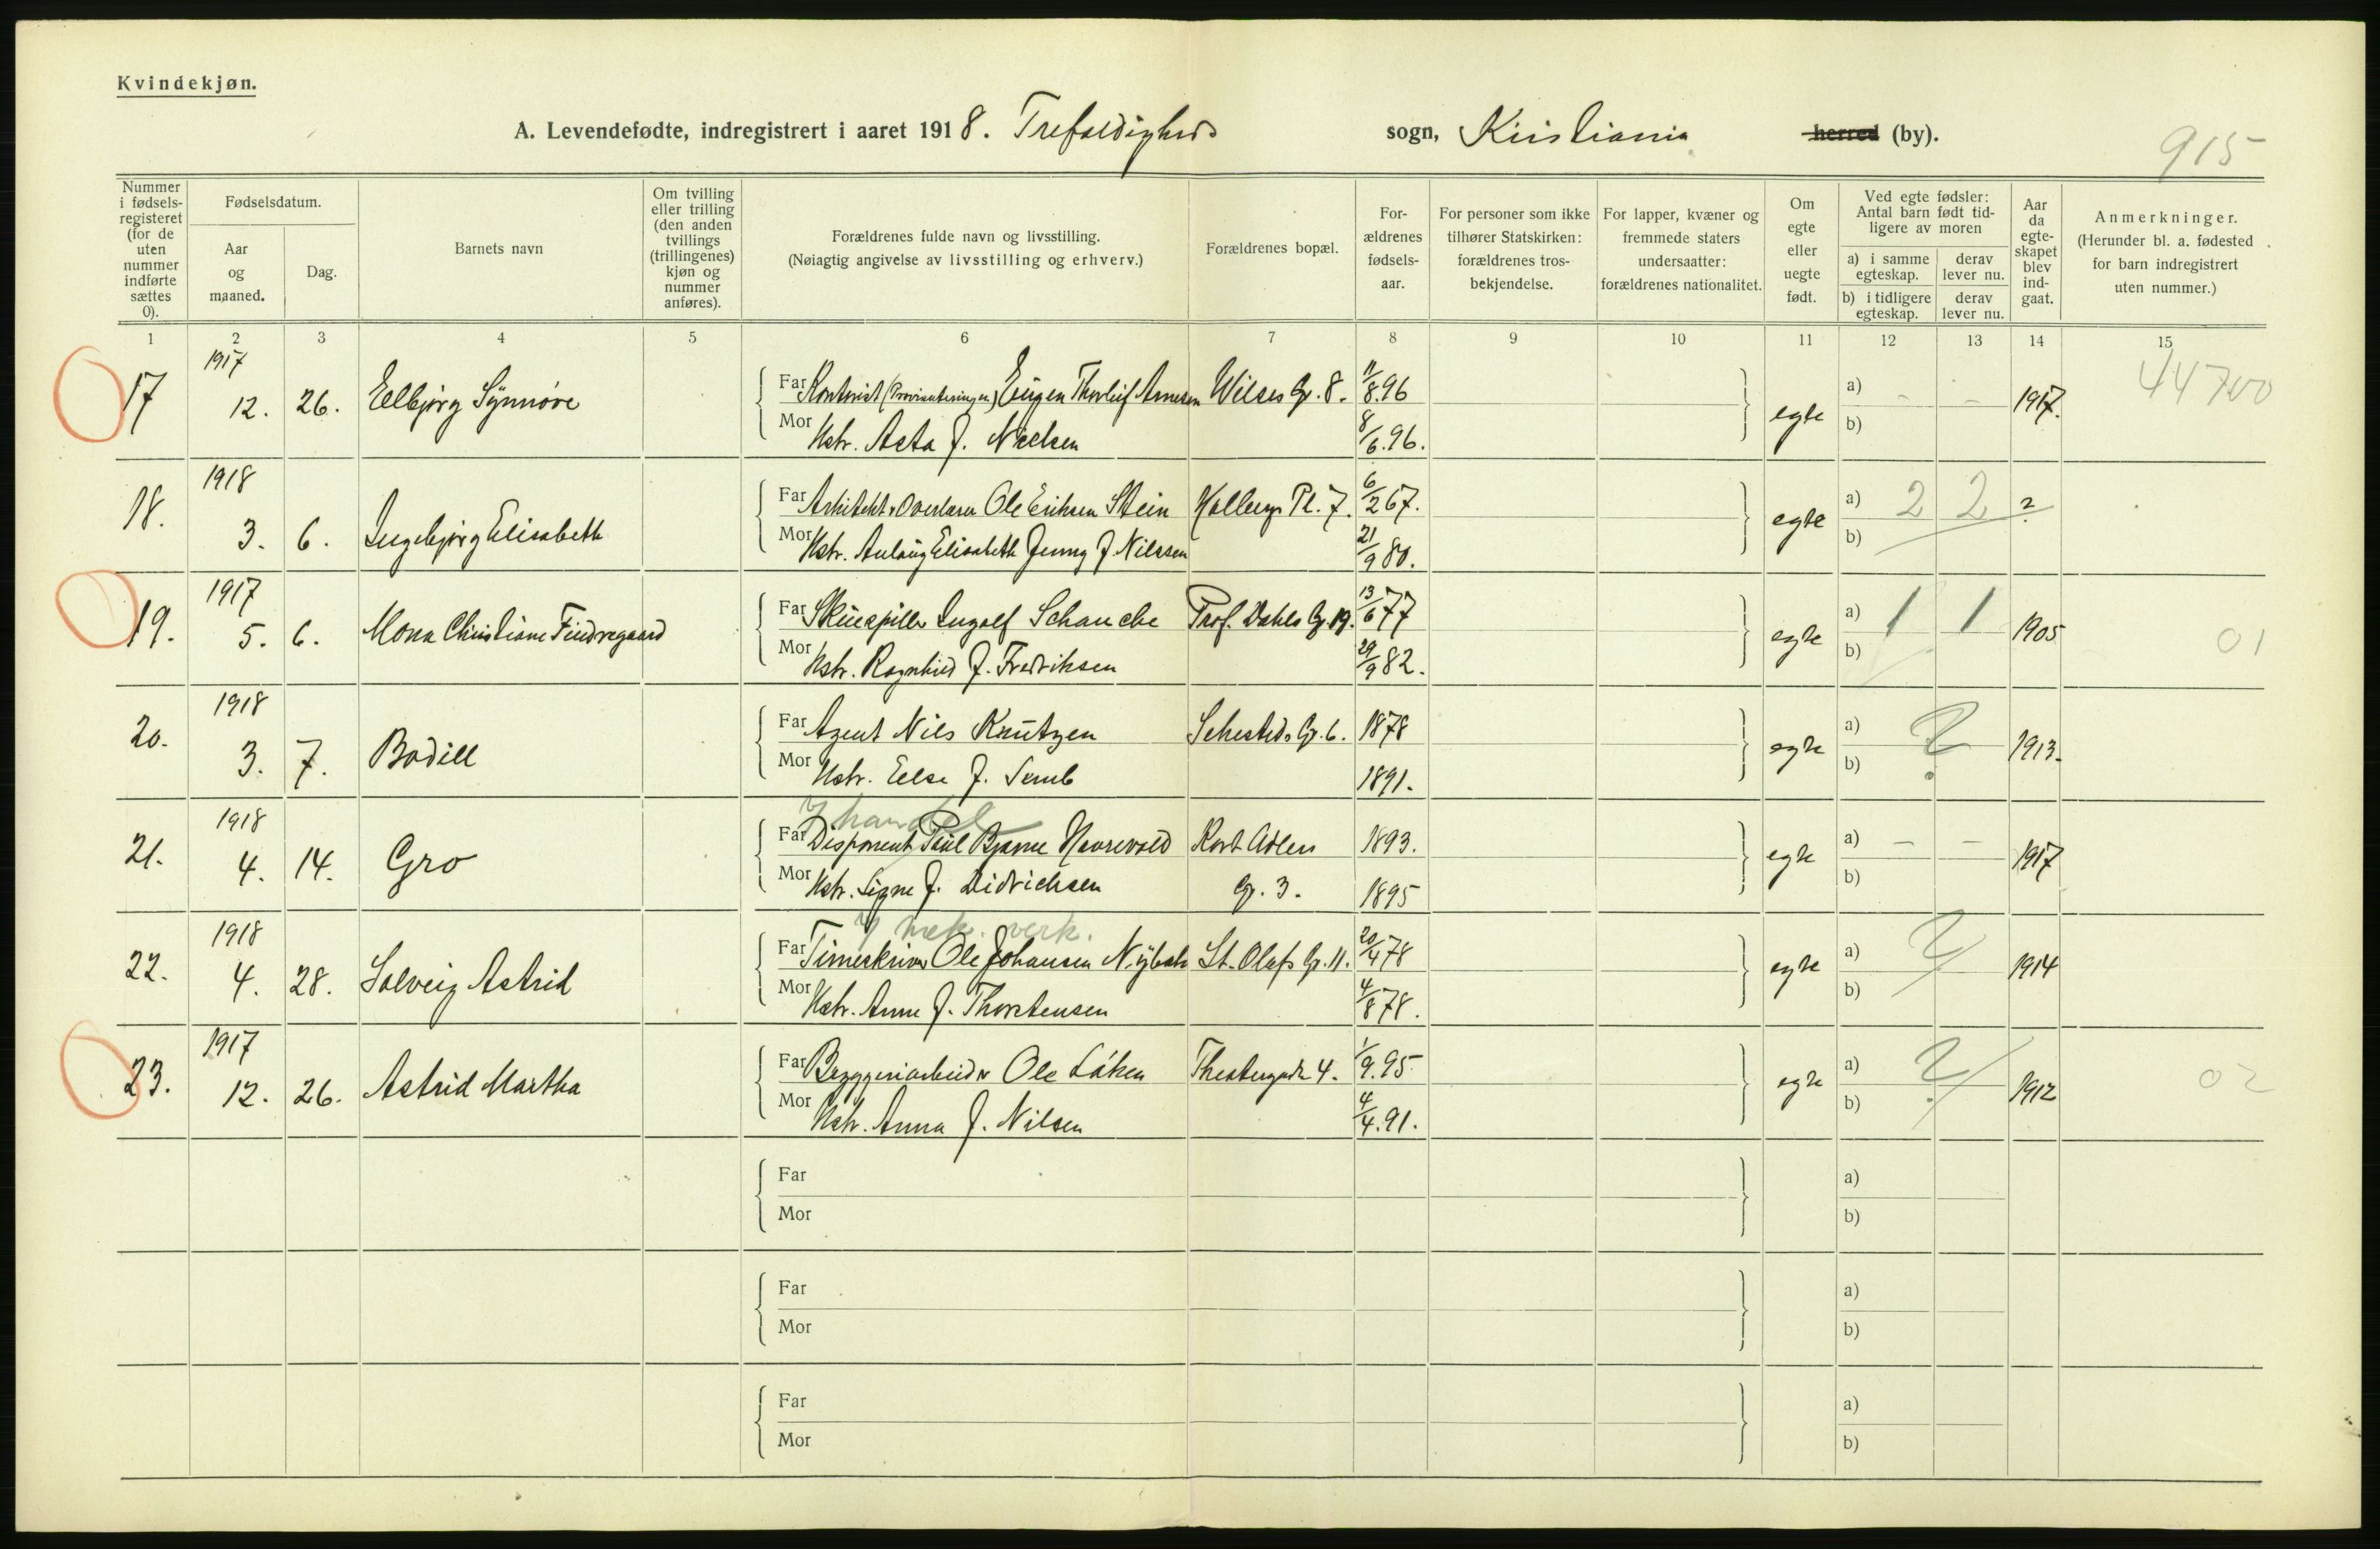 Kvindekjøn.
A. Levendefødte, indregistrert i aaret 1918. Trefoldigheds sogn, Kristiania herred (by).
915
Nummer i fødsels-registeret (for de uten nummer indførte sættes 0).
Fødselsdatum.
Aar og maaned.
Dag.
Barnets navn
Om tvilling eller trilling (den anden tvillings (trillingenes) kjøn og nummer anføres).
Forældrenes fulde navn og livsstilling.
(Nøiagtig angivelse av livsstilling og erhverv.)
Forældrenes bopæl.
For-ældrenes fødsels-aar.
For personer som ikke tilhører Statskirken: forældrenes tros-bekjendelse.
For lapper, kvæner og fremmede staters undersaatter: forældrenes nationalitet.
Om egte eller uegte født.
Ved egte fødsler: Antal barn født tid-ligere av moren
a) i samme egteskap.
derav lever nu.
b) i tidligere egteskap.
derav lever nu.
Aar da egte-skapet blev ind-gaat.
Anmerkninger.
(Herunder bl. a. fødested for barn indregistrert uten nummer.)
1 2 3 4 5 6 7 8 9 10 11 12 13 14 15
17 1917 12. 26. Ellbjørg Synnøve
Far Kontorist (Provianteringen) Eugen Thorleif Arnesen Wilses G. 8. 8.96
Mor Hstr. Asta f. Nielsen 8/6.96.
egte a) - - b) 1917. 44700
18. 1918 3. 6. Ingebjørg Elisabeth
Far Arkitekt & Overlærer Ole Eriksen Stein Holbergs Pl. 7. 6/2 67.
Mor Hstr. Aulaug Elisabeth Jenny f. Nilssen 21/9 80.
egte a) 2 2 b) ?
19. 1917 5. 6. Mona Christiane Findregaard
Far Skuespiller Ingolf Schanche Prof. Dahls G. 19. 13/6 77
Mor Hstr. Ragnhild f. Fredriksen 29/9 82.
egte a) 1 1 b) 1905 01
20. 1918 3. 7. Bodill
Far Agent Nils Knutzen Schesteds G. 6. 1878
Mor Hstr. Else f. Semb 1891.
egte a) ? b) 1913.
21. 1918 4. 14. Gro
handel
Far Disponent Paul Bjarne Havrevold Kort Adlers 1893.
Mor Hstr. Signe f. Didrichsen G. 3. 1895
egte a) - - b) 1917
22. 1918 4. 28. Solveig Astrid
mek. verk.
Far Timeskriver Ole Johansen Nybak St. Olafs G. 11. 20/4 78
Mor Hstr. Anne f. Thorstensen 4/8 78.
egte a) ? b) 1914
23. 1917 12. 26. Astrid Martha
Far Bryggeriarbeider Ole Løken Theatergade 4. 1/9.95
Mor Hstr. Anna f. Nilsen 4/4.91.
egte a) ? b) 1912 02
Far a)
Mor b)
Far a)
Mor b)
Far a)
Mor b)